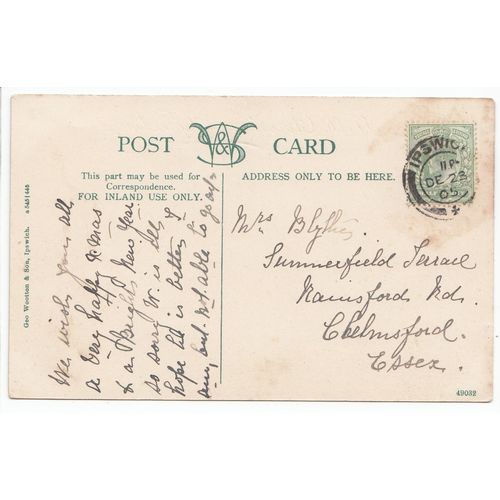 POST CARD
This part may be used for
Correspondence.
FOR INLAND USE ONLY.
ADDRESS ONLY TO BE HERE.
IPSWICH
11 P
DE 23
05
We wish you all
a very happy Xmas
& a Bright New Year
so sorry W. is ill,
hope Ed is better, I
am, but not able to go out.
Mrs Blythe,
Summerfield Terrace
Rainsford Rd.
Chelmsford.
Essex.
Geo Wootton & Son, Ipswich.
49032